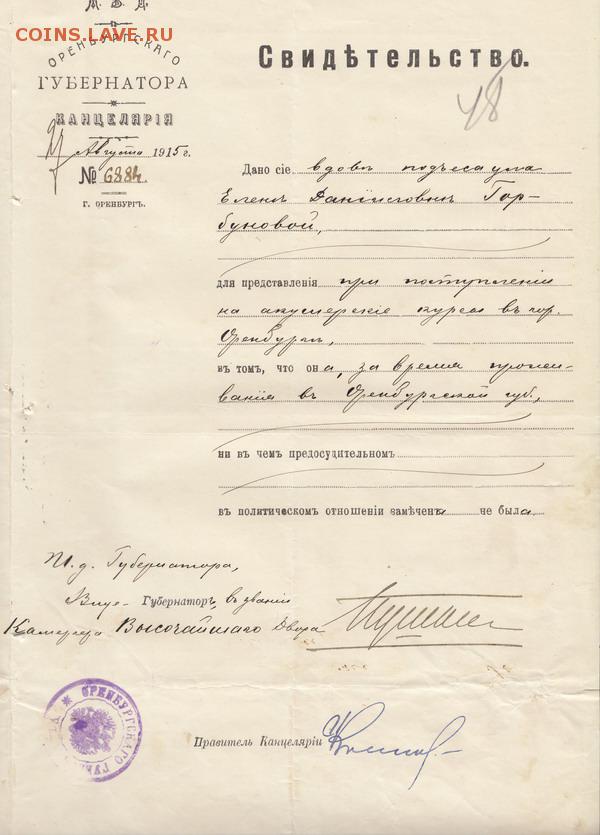 М. В. Д.
COINS.LAVE.RU
ОРЕНБУРГСКАГО
ГУБЕРНАТОРА
КАНЦЕЛЯРІЯ
Августа 1915 г.
№ 6884.
г. ОРЕНБУРГЪ.
Свидѣтельство.
48
Дано сіе вдовѣ подъесаула
Еленѣ Даніиловнѣ Гор-
буновой,
для представленія при поступленіи
на акушерскіе курсы въ гор.
Оренбургѣ,
въ томъ, что она, за время прожи-
ванія въ Оренбургской губ.,
ни въ чемъ предосудительномъ
въ политическомъ отношеніи замѣчена не была.
И. д. Губернатора,
Вице-Губернаторъ, въ званіи
Камергера Высочайшаго Двора
Правитель Канцеляріи
ОРЕНБУРГСКАГО